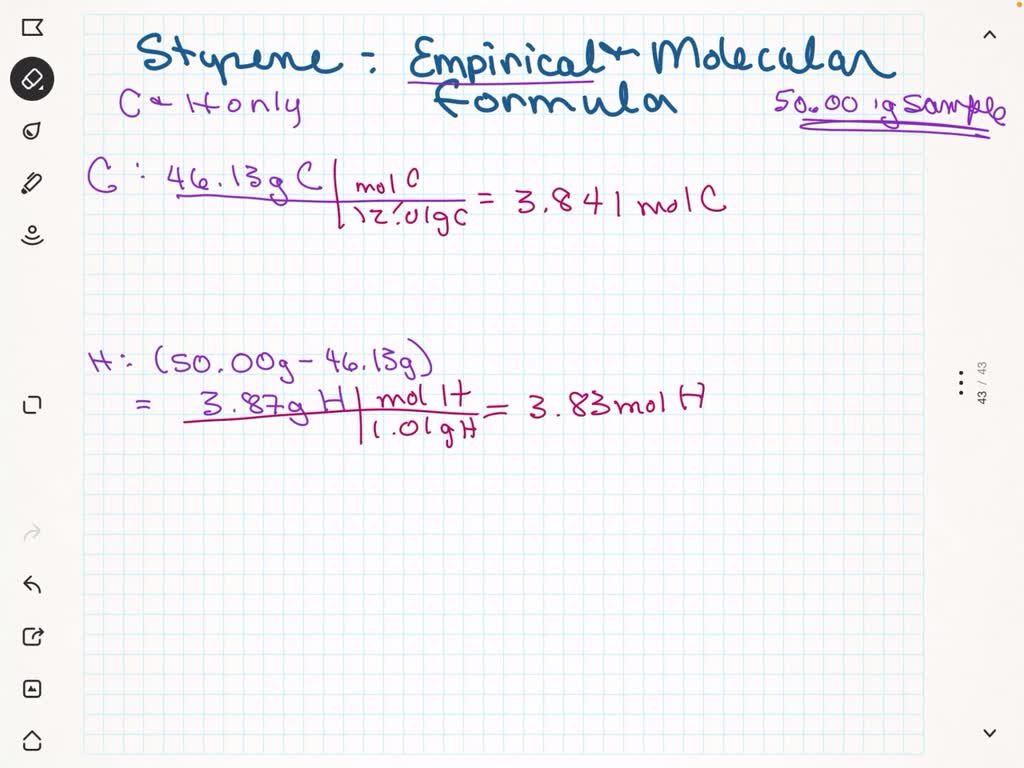 Styrene : Empirical + Molecular
Formula
C + H only
50.00 g sample
C : 46.13g C | mol C
12.01gC
= 3.841 mol C
H : (50.00g - 46.13g)
= 3.87g H | mol H
1.01gH
= 3.83 mol H
43 / 43